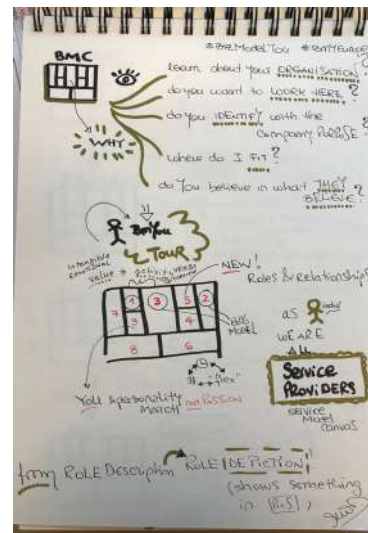 #BizModelYou
BMC
Learn about your ORGANISATION?
do you want to WORK HERE?
do you IDENTIFY with the
Company PURPOSE?
WHY
where do I FIT?
do you believe in what THEY
BELIEVE?
BMYou
TOUR
Intangible
emotional
value
NEW!
Roles & Relationships
7 1 3 5 2
3 4
8 6
MODEL
as
WE ARE
ALL
SERVICE
PROVIDERS
SERVICE
MODEL
CANVAS
"flex"
You & personality
MATCH not PASSION
from ROLE Description ROLE DEPICTION
(shows something
in